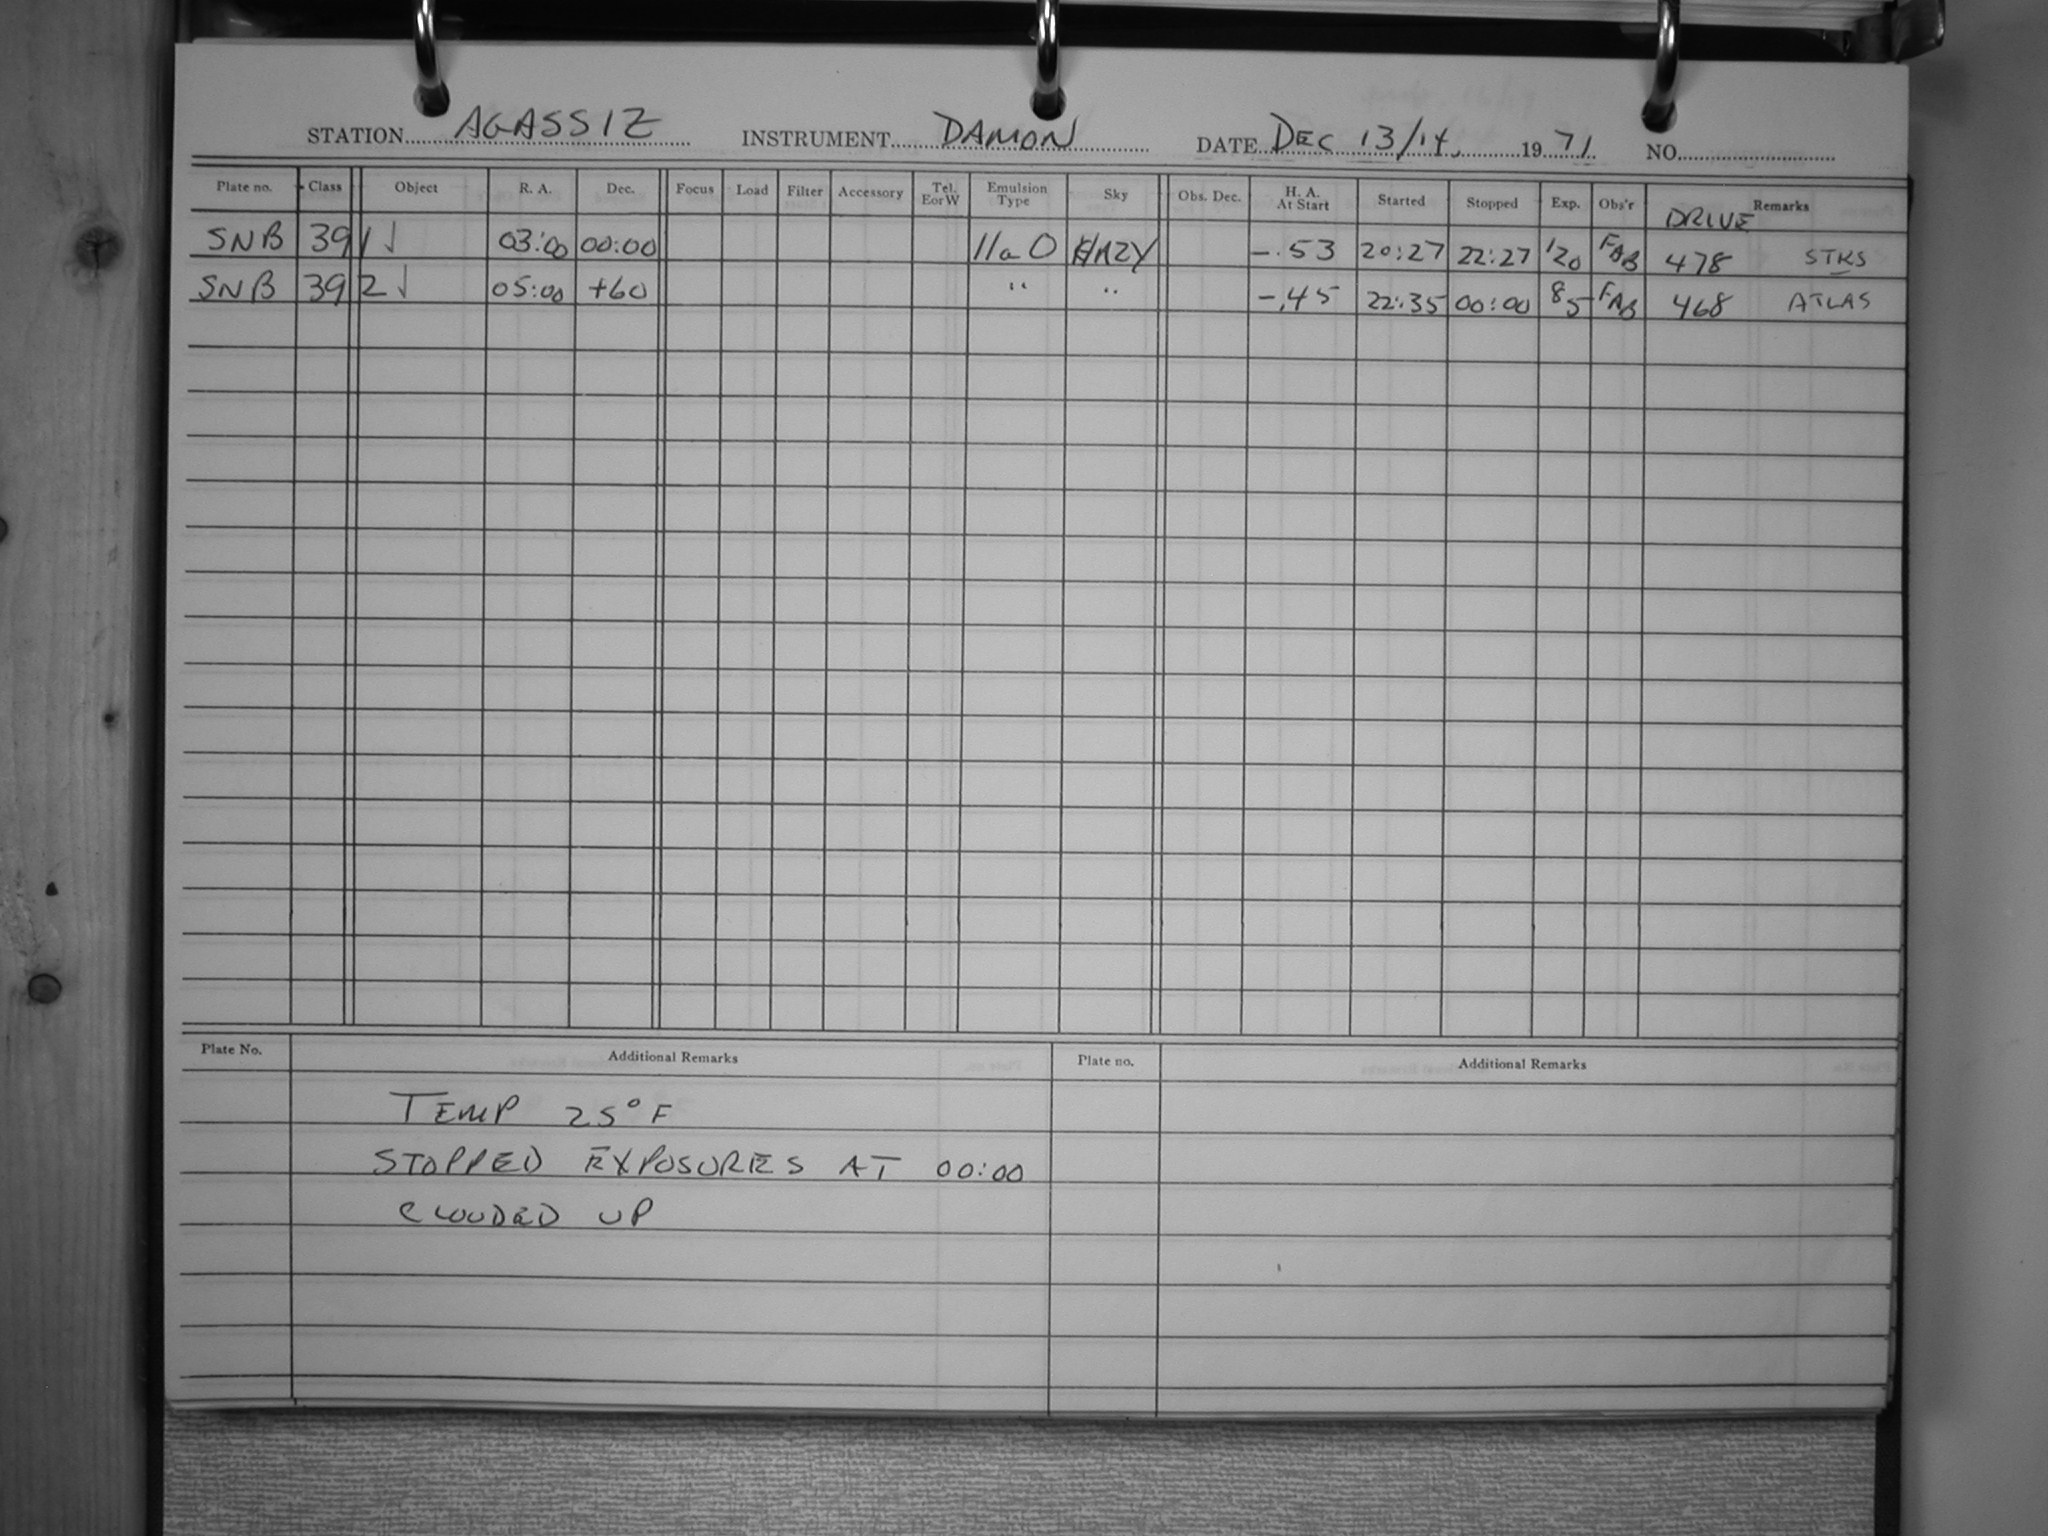 STATION AGASSIZ INSTRUMENT DAMON DATE DEC 13/14, 1971 NO.
Plate no. Class Object R. A. Dec. Focus Load Filter Accessory Tel. E or W Emulsion Type Sky Obs. Dec. H. A. At Start Started Stopped Exp. Obs'r DRIVE Remarks
SNB 391 √ 03:00 00:00 11a O HAZY -.53 20:27 22:27 120 FAB 478 STKS
SNB 392 √ 05:00 +60 " " -.45 22:35 00:00 85 FAB 468 ATLAS
Plate No. Additional Remarks Plate no. Additional Remarks
TEMP 25°F
STOPPED EXPOSURES AT 00:00
CLOUDED UP